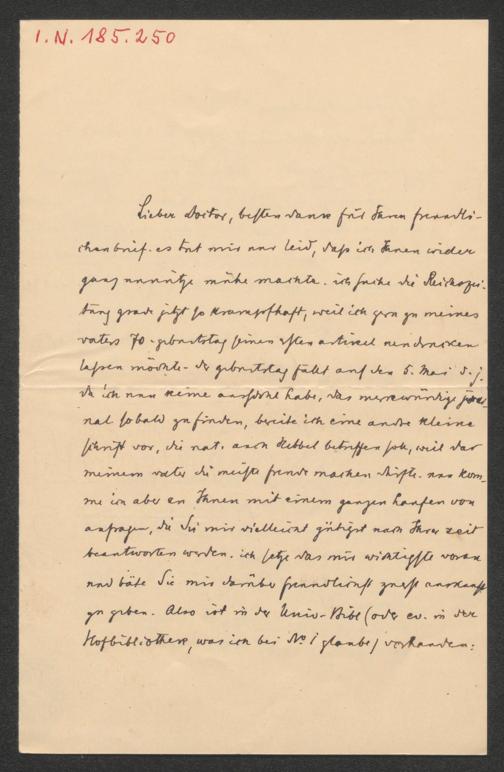 I.N. 185.250
Lieber Doctor, besten dank für Ihren freundli-
chen brief. es tut mir nur leid, daß ich Ihnen wieder
ganz unnütze mühe machte. ich suche die Reichszei-
tung grade jetzt so krampfhaft, weil ich gern zu meines
vaters 70. geburtstag seinen ersten artikel neudrucken
lassen möchte. der geburtstag fällt auf den 6. Mai d. J.
da ich nun keine aussicht habe, das merkwürdige jour-
nal sobald zu finden, bereite ich eine andre kleine
schrift vor, die nat. auch Hebbel betreffen soll, weil das
meinem vater die meiste freude machen dürfte. nun kom-
me ich aber an Ihnen mit einem ganzen haufen von
anfragen, die Sie mir vielleicht gütigst nach Ihrer zeit
beantworten werden. ich setze das mir wichtigste voran
und bäte Sie mir darüber freundlichst zuerst auskunft
zu geben. Also ist in der Univ-Bibl (oder ev. in der
Hofbibliothek, was ich bei No 1 glaube) vorhanden: